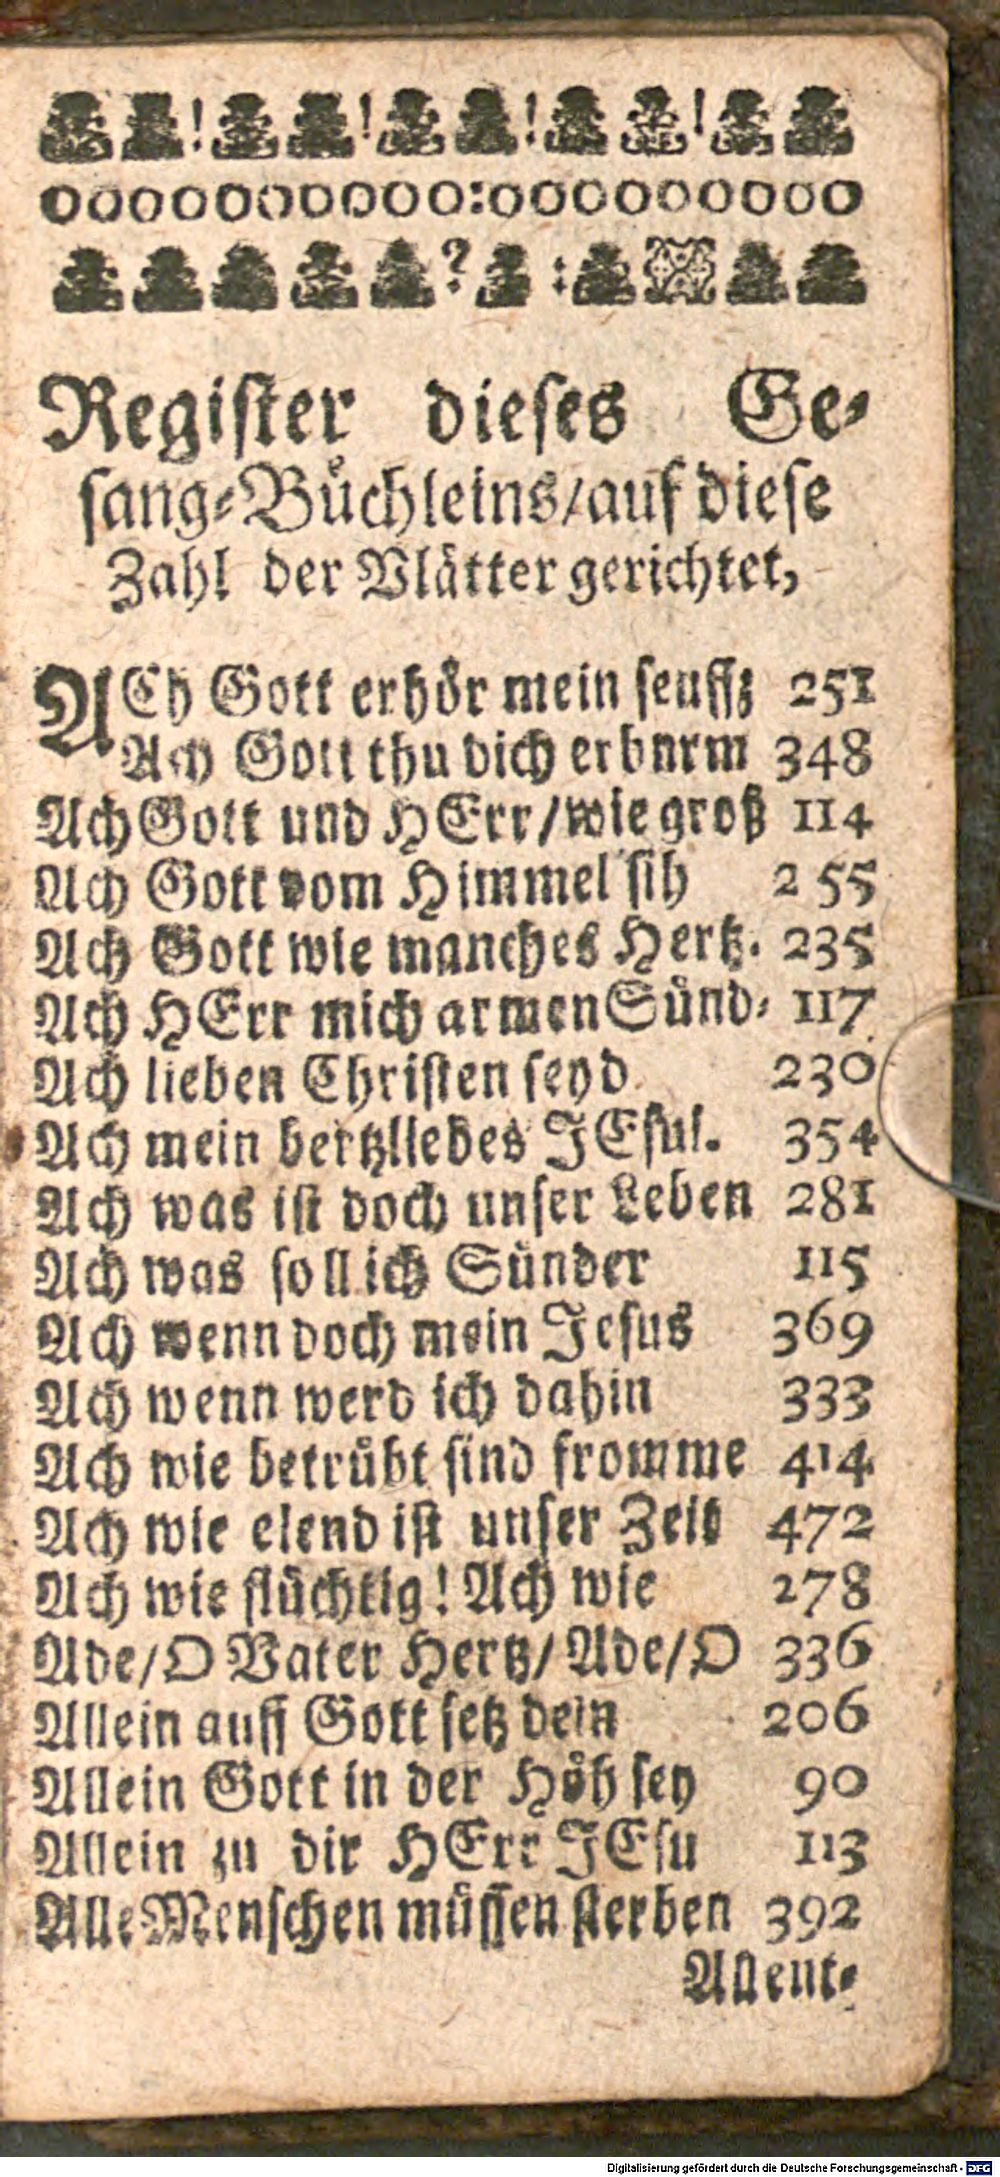 Register dieses Ge-
sang-Büchleins/auf diese
Zahl der Blätter gerichtet,
ACh Gott erhör mein seuffz 251
Ach Gott thu dich erbarm 348
Ach Gott und HErr/wie groß 114
Ach Gott vom Himmel sih 255
Ach Gott wie manches Hertz. 235
Ach HErr mich armen Sünd- 117
Ach lieben Christen seyd 230
Ach mein hertzliebes JEsul. 354
Ach was ist doch unser Leben 281
Ach was soll ich Sünder 115
Ach wenn doch mein Jesus 369
Ach wenn werd ich dahin 333
Ach wie betrübt sind fromme 414
Ach wie elend ist unser Zeit 472
Ach wie flüchtig! Ach wie 278
Ade/O Vater Hertz/Ade/O 336
Allein auff Gott setz dein 206
Allein Gott in der Höh sey 90
Allein zu dir HErr JEsu 113
Alle Menschen müssen sterben 392
Allent-
Digitalisierung gefördert durch die Deutsche Forschungsgemeinschaft - DFG